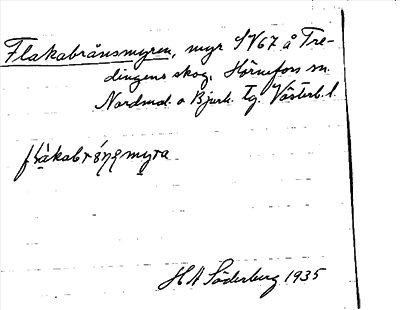 Flakabrånsmyren, myr SV67 å Tre-
dingens skog, Hörnefors sn
Nordmal. o Bjurh. tg. Västerb. l.
flàkabrǻnsmyra
H A Söderberg 1935